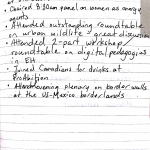 • Chaired 8:30am panel on women as energy
agents
• Attended outstanding roundtable
on urban wildlife & great discussion
• Attended 2-part workshop/
roundtable on digital pedagogies
in EH
• Joined Canadians for drinks at
Prohibition
• plenary on border walls
at the US-Mexico borderlands